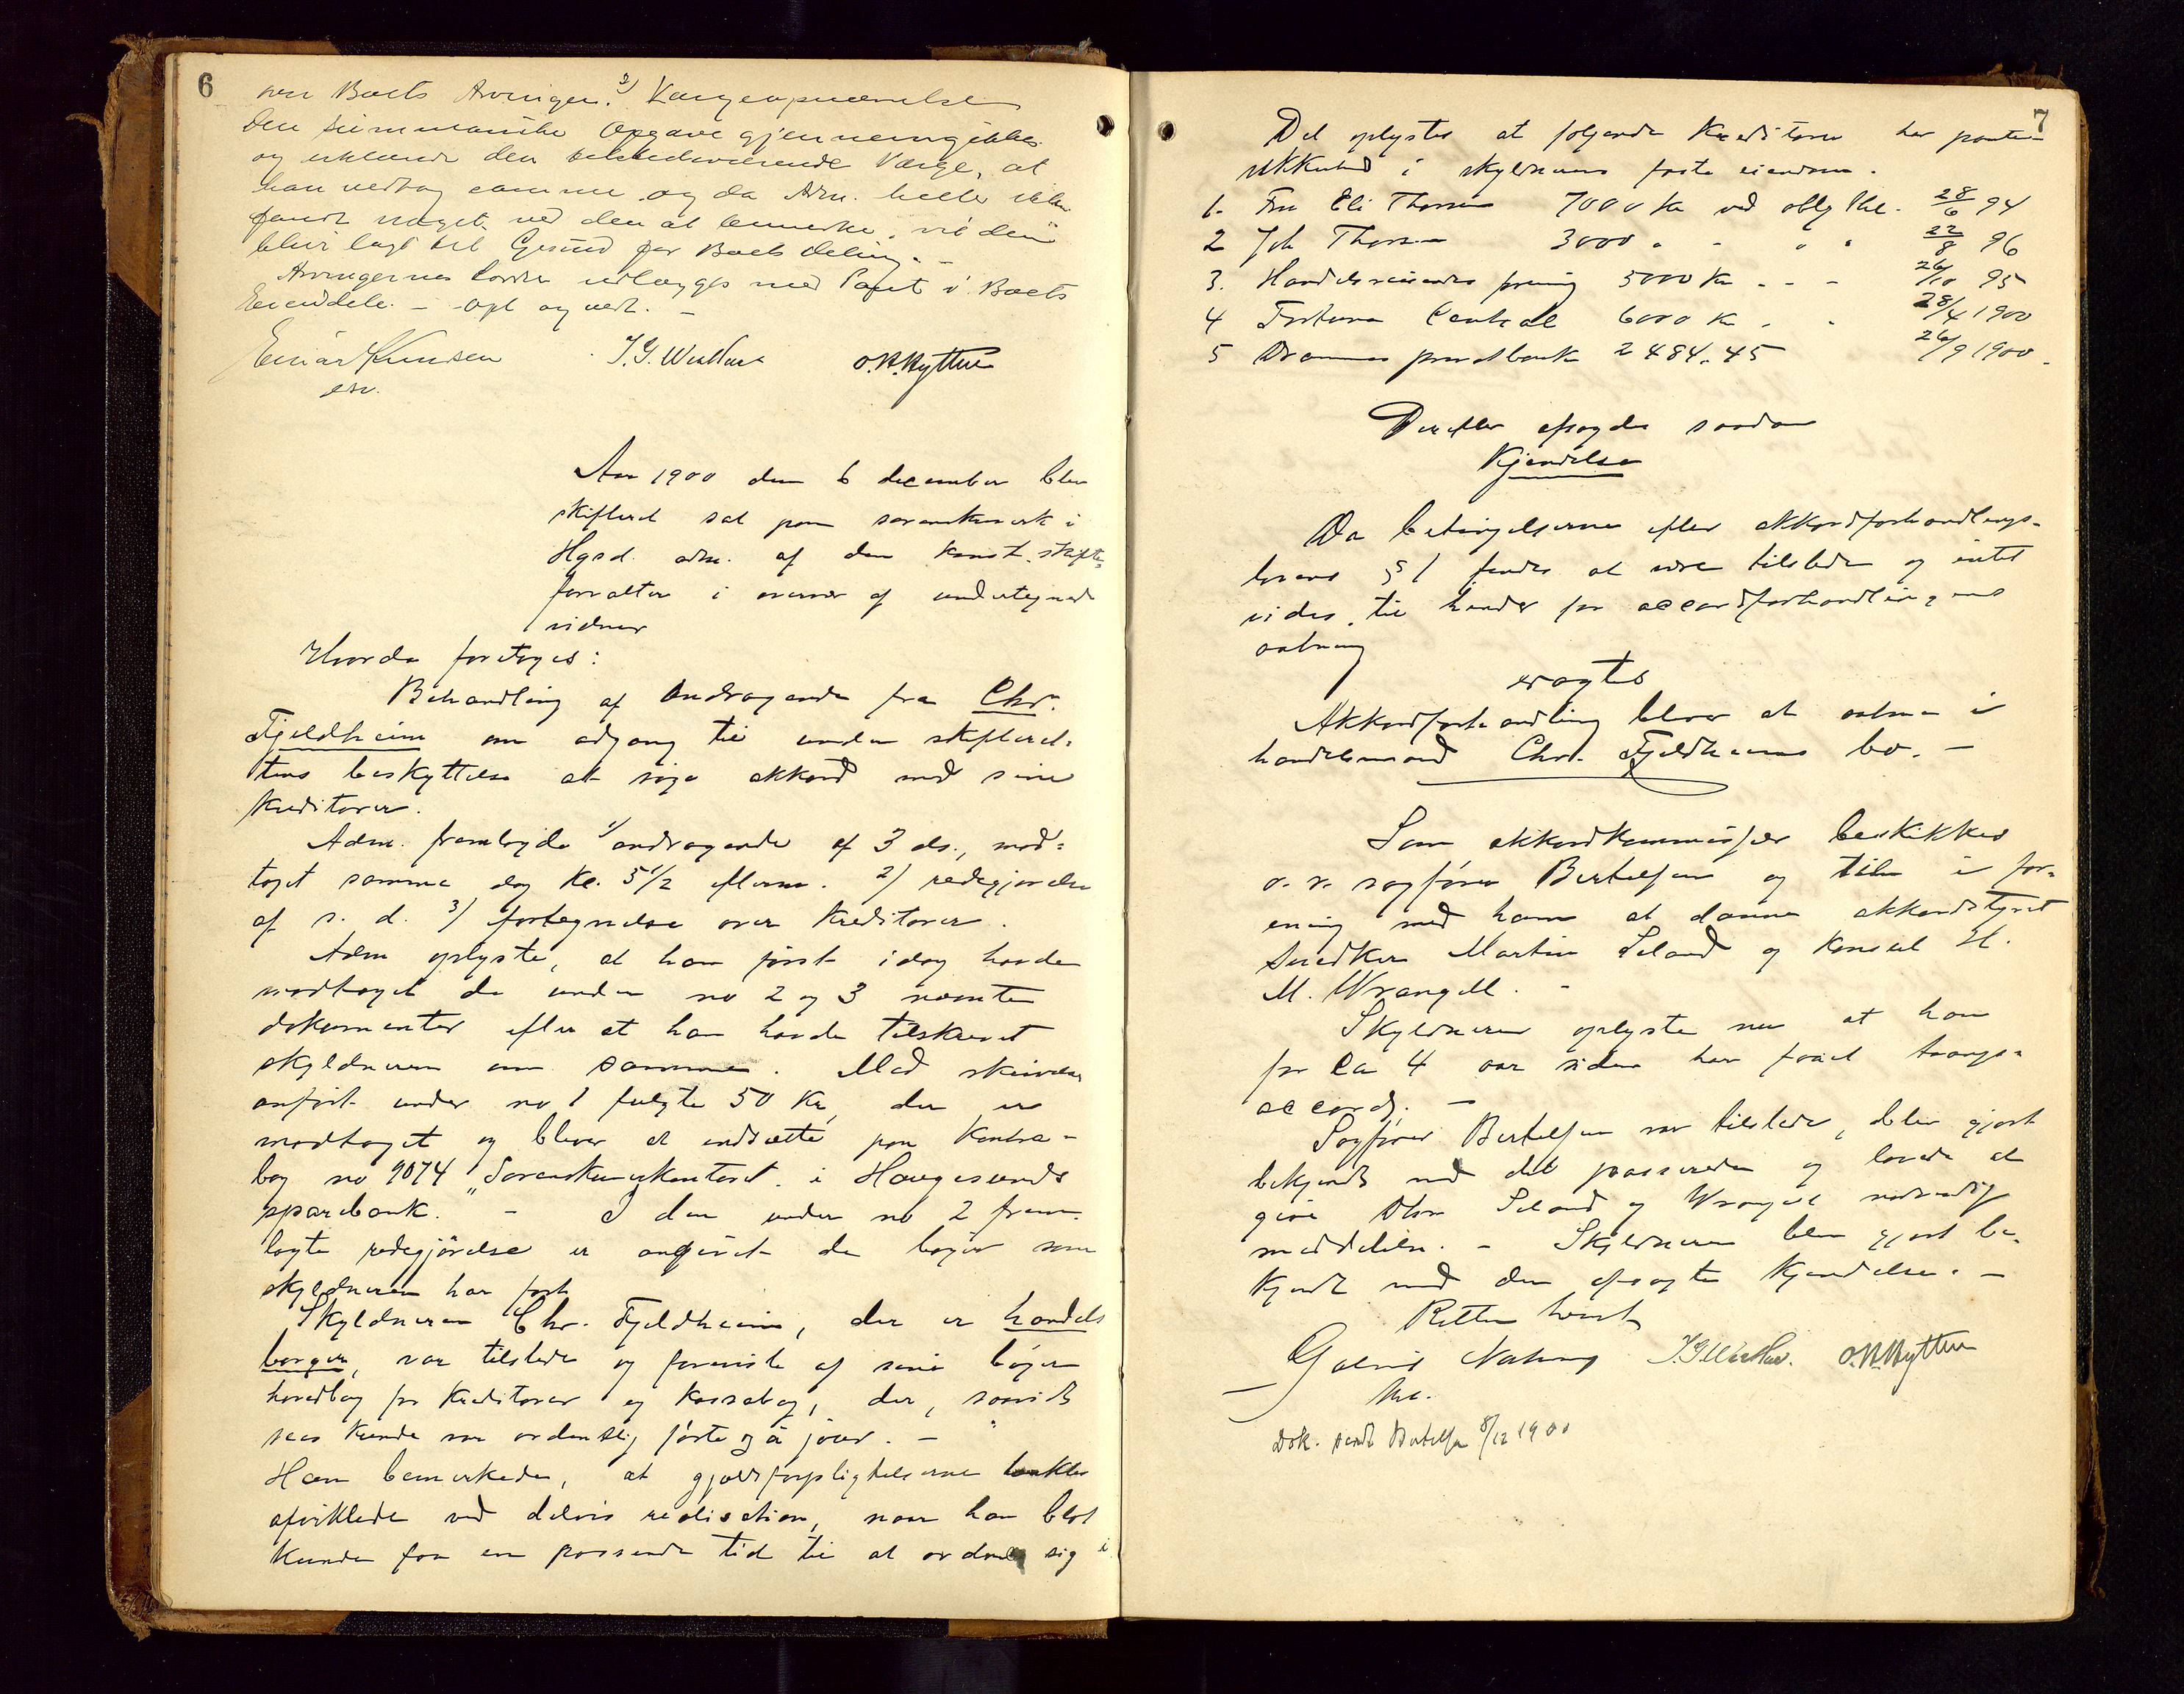 6
over Boets Arvinger. 2) Værgeopnævnelse
Den summariske Opgave gjennemgikkes
og erklærede den tilstedeværende Værge, at
han vedtog samme og da Adm. heller ikke
fandt noget ved den at bemærke, vil den
blive lagt til Grund for Boets deling. –
Arvingernes Lodder udlægges med Pant i Boets
Eiendele. – Opl. og vedt. –
Einar Knudsen
O. N. Hytten
Aar 1900 den 6 december blev
skifteret sat paa sorenskriverk. i
Hgsd. adm. af den konst. skifte-
forvalter i overvær af undertegnede
vidner
Hvorda foretoges:
Behandling af Andragende fra Chr.
Fjeldheim om adgang til under skifteret-
tens beskyttelse at søge akkord med sine
kreditorer.
Adm. fremlagde 1) andragende af 3 ds., mod-
taget samme dag kl. 5 1/2 efterm. 2) redegjørelse
af s. d. 3) fortegnelse over kreditorer.
Adm oplyste, at han først idag havde
modtaget de under no 2 og 3 nævnte
dokumenter efter at han havde tilskrevet
skyldneren om samme. Med skrivelse
anført under no 1 fulgte 50 kr, der er
modtaget og bliver at indsætte paa kontra-
bog no 9074 "Sorenskriverkontoret" i Haugesunds
sparebank. – I den under no 2 frem-
lagte redegjørelse er angivet de bøger som
skyldneren har ført
Skyldneren Chr. Fjeldheim, der er handels
borger, var tilstede og foreviste af sine bøger
hovedbog for kreditorer og kassabog, der, saavidt
sees kunde var ordentlig førte og à jour. –
Han bemerkede, at gjældsforpligtelserne tænktes
afviklede ved delvis realisation, naar han blot
kunde faa en passende tid til at ordne sig i
7
Det oplystes at følgende kreditorer har pante-
sikkerhed i skyldnerens faste eiendom.
1. Fru Eli Thorsen 7000 kr ved oblg. thl. 28/6 94
2 Joh Thorsen 3000 " - " " 22/8 96
3. Handelsreisendes forening 5000 kr - - - 26/10 95
4 Fortuna Central 6000 kr " " 28/4 1900
5 Drammens privatbank 2484.45 26/9 1900.
Derefter afsagdes saadan
Kjendelse
Da betingelserne efter akkordforhandlings-
lovens § 1 findes at være tilstede og intet
vides til hinder for accordforhandlingens
aabning
eragtes
Akkordforhandling bliver at aabne i
handelsmand Chr. Fjeldheims bo. –
Som akkordkommissær beskikkes
o. r. sagfører Bertelsen og til i for-
ening med ham at danne akkordstyret
snedker Martin Seland og konsul H.
M. Wrangell. –
Skyldneren oplyste nu at han
for ca 4 aar siden har faaet tvangs-
accord. –
Sagfører Bertelsen var tilstede, blev gjort
bekjendt med det passerede og lovede at
give Dhrr Seland og Wrangell nødvendig
meddelelse. – Skyldneren blev gjort be-
kjendt med den afsagte kjendelse. –
Retten hævet
O. N. Hytten
Dok. sendt Bertelsen 8/12 1900